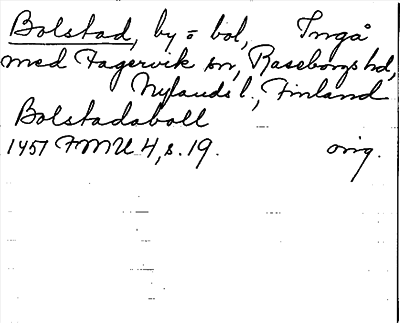 Bolstad, by = bol, Ingå
med Fagervik sn, Raseborgs hd,
Nylands l., Finland
Bolstadaboll
1451 FMU 4, s. 19. orig.